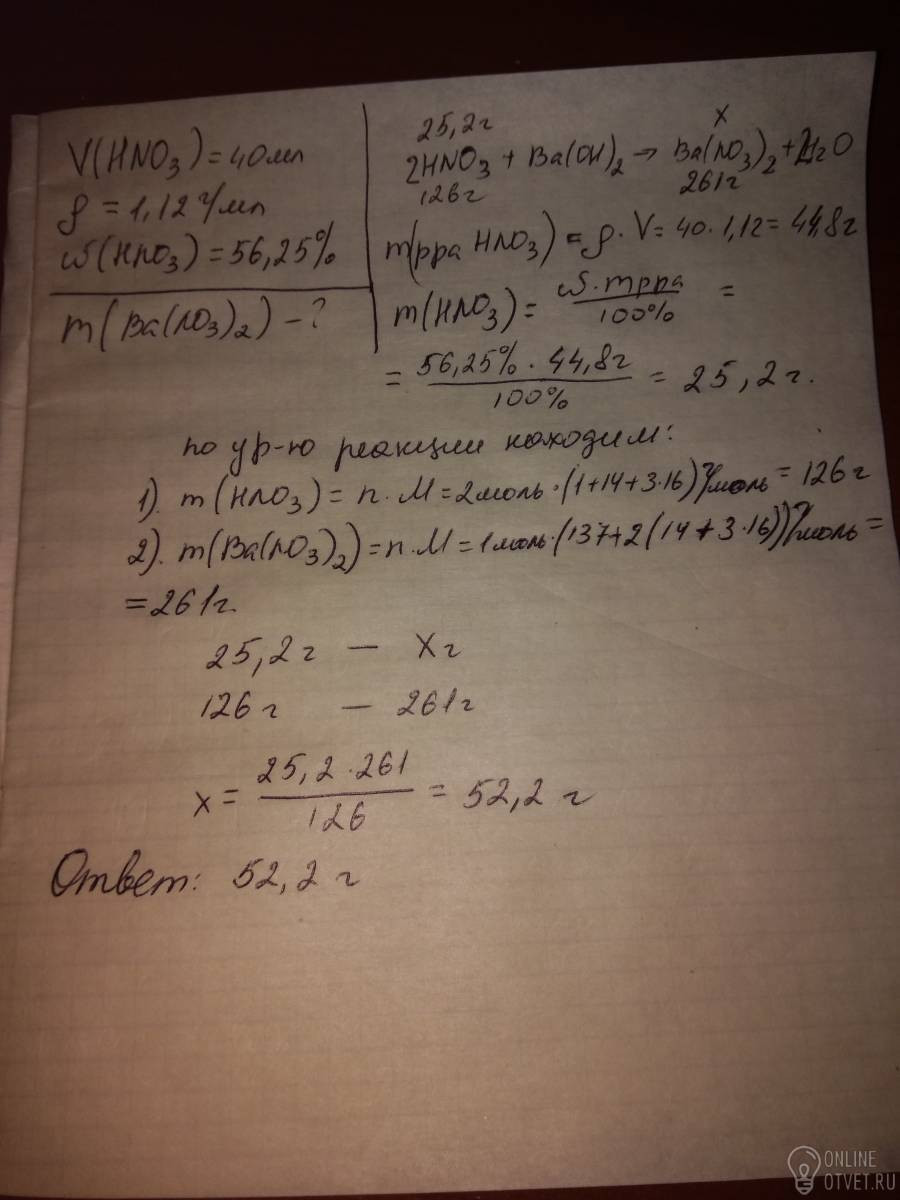 V(HNO₃) = 40мл
ρ = 1,12 г/мл
ω(HNO₃) = 56,25%
m(Ba(NO₃)₂) - ?
25,2г x
2HNO₃ + Ba(OH)₂ → Ba(NO₃)₂ + 2H₂O
126г 261г
m(рра HNO₃) = ρ · V = 40 · 1,12 = 44,8г
m(HNO₃) = ω · mрра / 100% =
= 56,25% · 44,8г / 100% = 25,2г.
по ур-ю реакции находим:
1). m(HNO₃) = n · M = 2моль · (1+14+3·16) г/моль = 126г
2). m(Ba(NO₃)₂) = n · M = 1моль · (137+2(14+3·16)) г/моль =
= 261г.
25,2г — xг
126г — 261г
x = 25,2 · 261 / 126 = 52,2 г
Ответ: 52,2 г
ONLINE
OTVET.RU